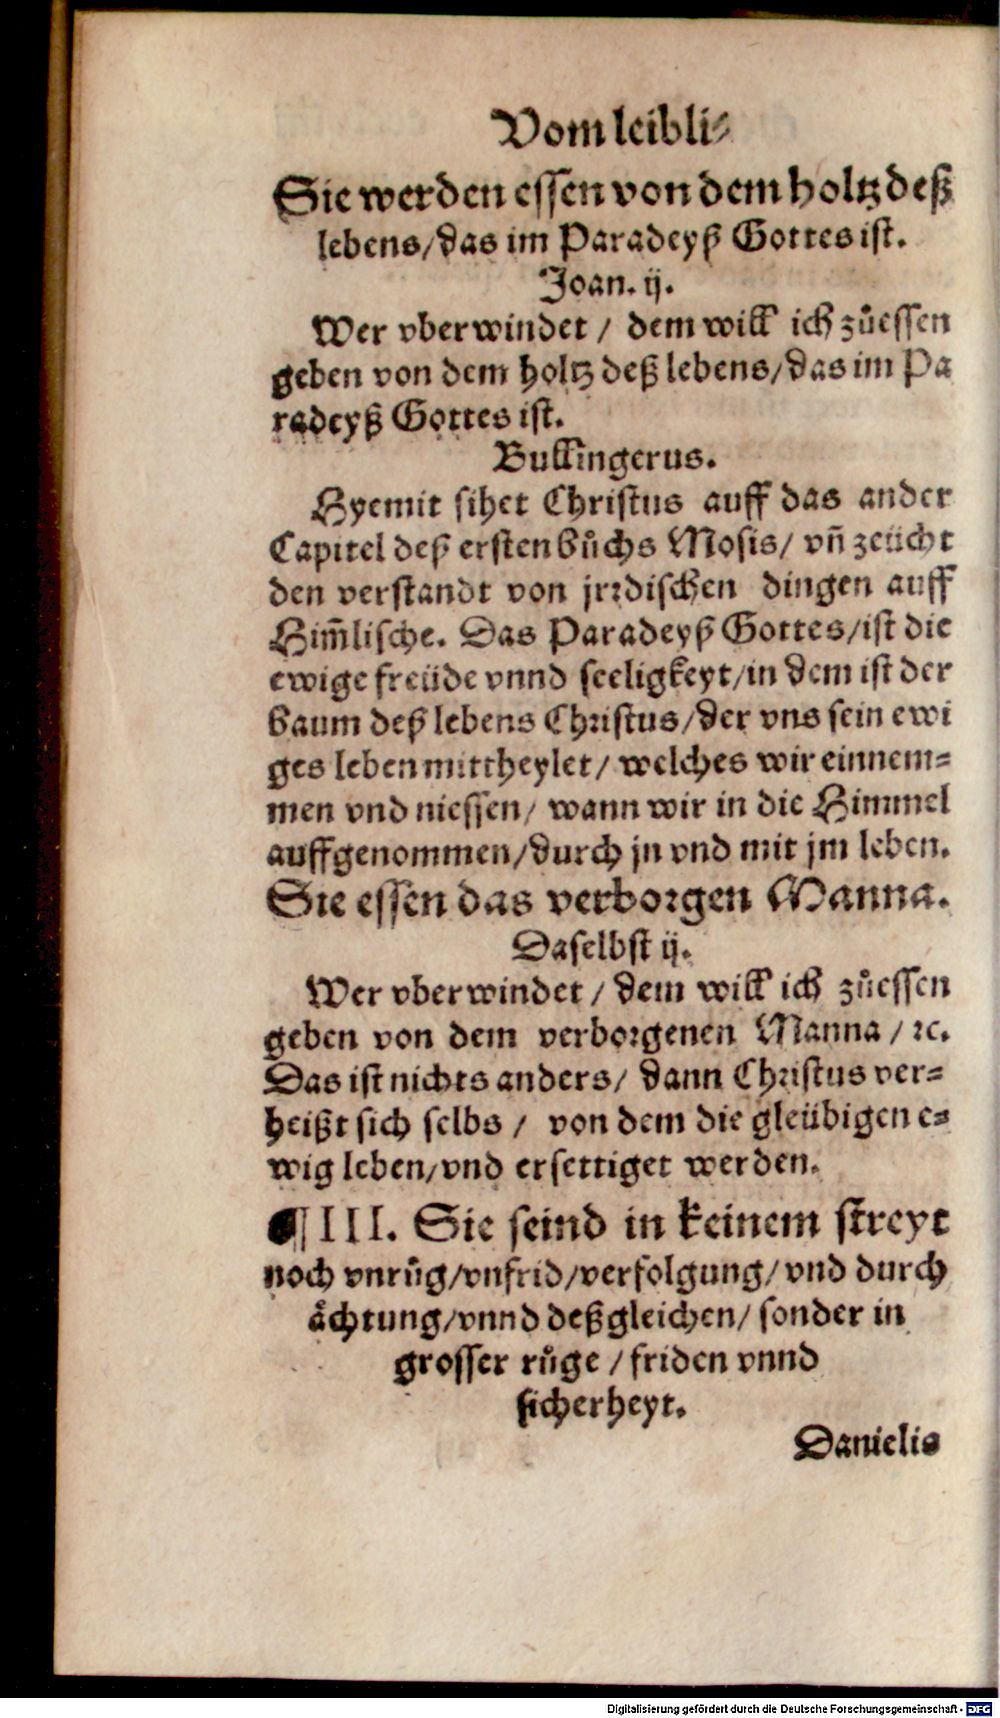 Vom leibli⸗
Sie werden essen von dem holtz deß
lebens/das im Paradeyß Gottes ist.
Joan. ij.
Wer vberwindet / dem will ich zůessen
geben von dem holtz deß lebens/das im Pa
radeyß Gottes ist.
Bullingerus.
Hyemit sihet Christus auff das ander
Capitel deß ersten bůchs Mosis/ vñ zeücht
den verstandt von jrrdischen dingen auff
Him̃lische. Das Paradeyß Gottes/ist die
ewige freüde vnnd seeligkeyt/in dem ist der
baum deß lebens Christus/der vns sein ewi
ges leben mittheylet/ welches wir einnem⸗
men vnd niessen/ wann wir in die Himmel
auffgenommen/durch jn vnd mit jm leben.
Sie essen das verborgen Manna.
Daselbst ij.
Wer vberwindet / dem will ich zůessen
geben von dem verborgenen Manna / ꝛc.
Das ist nichts anders/ dann Christus ver⸗
heißt sich selbs / von dem die gleübigen e⸗
wig leben/vnd ersettiget werden.
¶III. Sie seind in keinem streyt
noch vnrůg/vnfrid/verfolgung/vnd durch
ächtung/vnnd deßgleichen/ sonder in
grosser růge / friden vnnd
sicherheyt.
Danielis
Digitalisierung gefördert durch die Deutsche Forschungsgemeinschaft - DFG